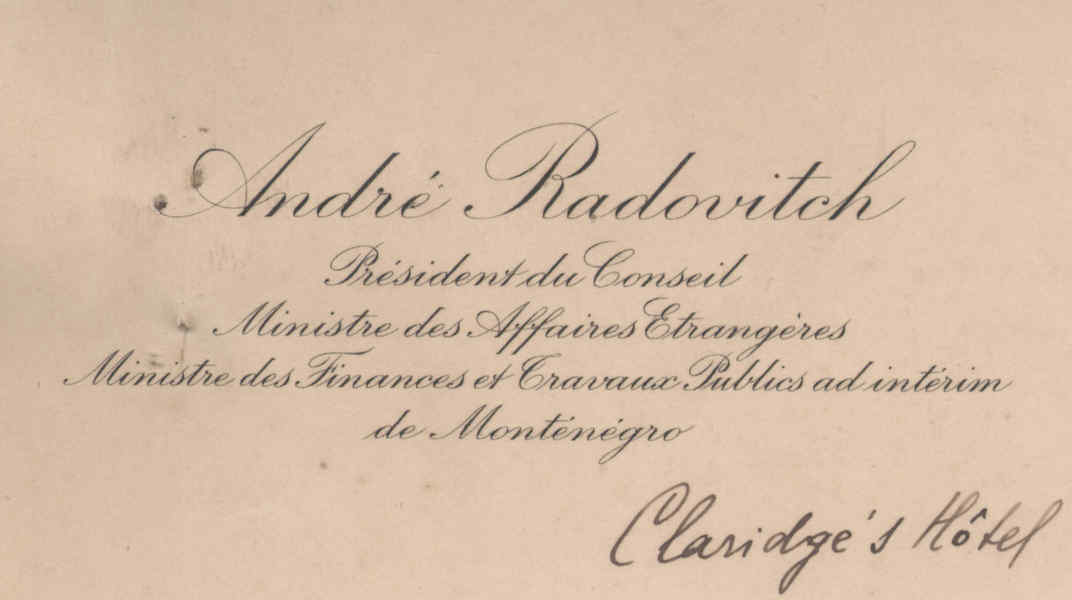 André Radovitch
Président du Conseil
Ministre des Affaires Etrangères
Ministre des Finances et Travaux Publics ad intérim
de Monténégro
Claridge's Hôtel